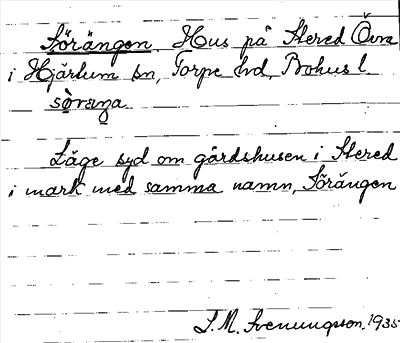 Sörängen. Hus på Stered Övra
i Hjärtum sn, Torpe hd, Bohus l.
sö̀ræŋa
Läge syd om gårdshusen i Stered
i mark med samma namn, Sörängen
S. M. Svenungsson. 1935